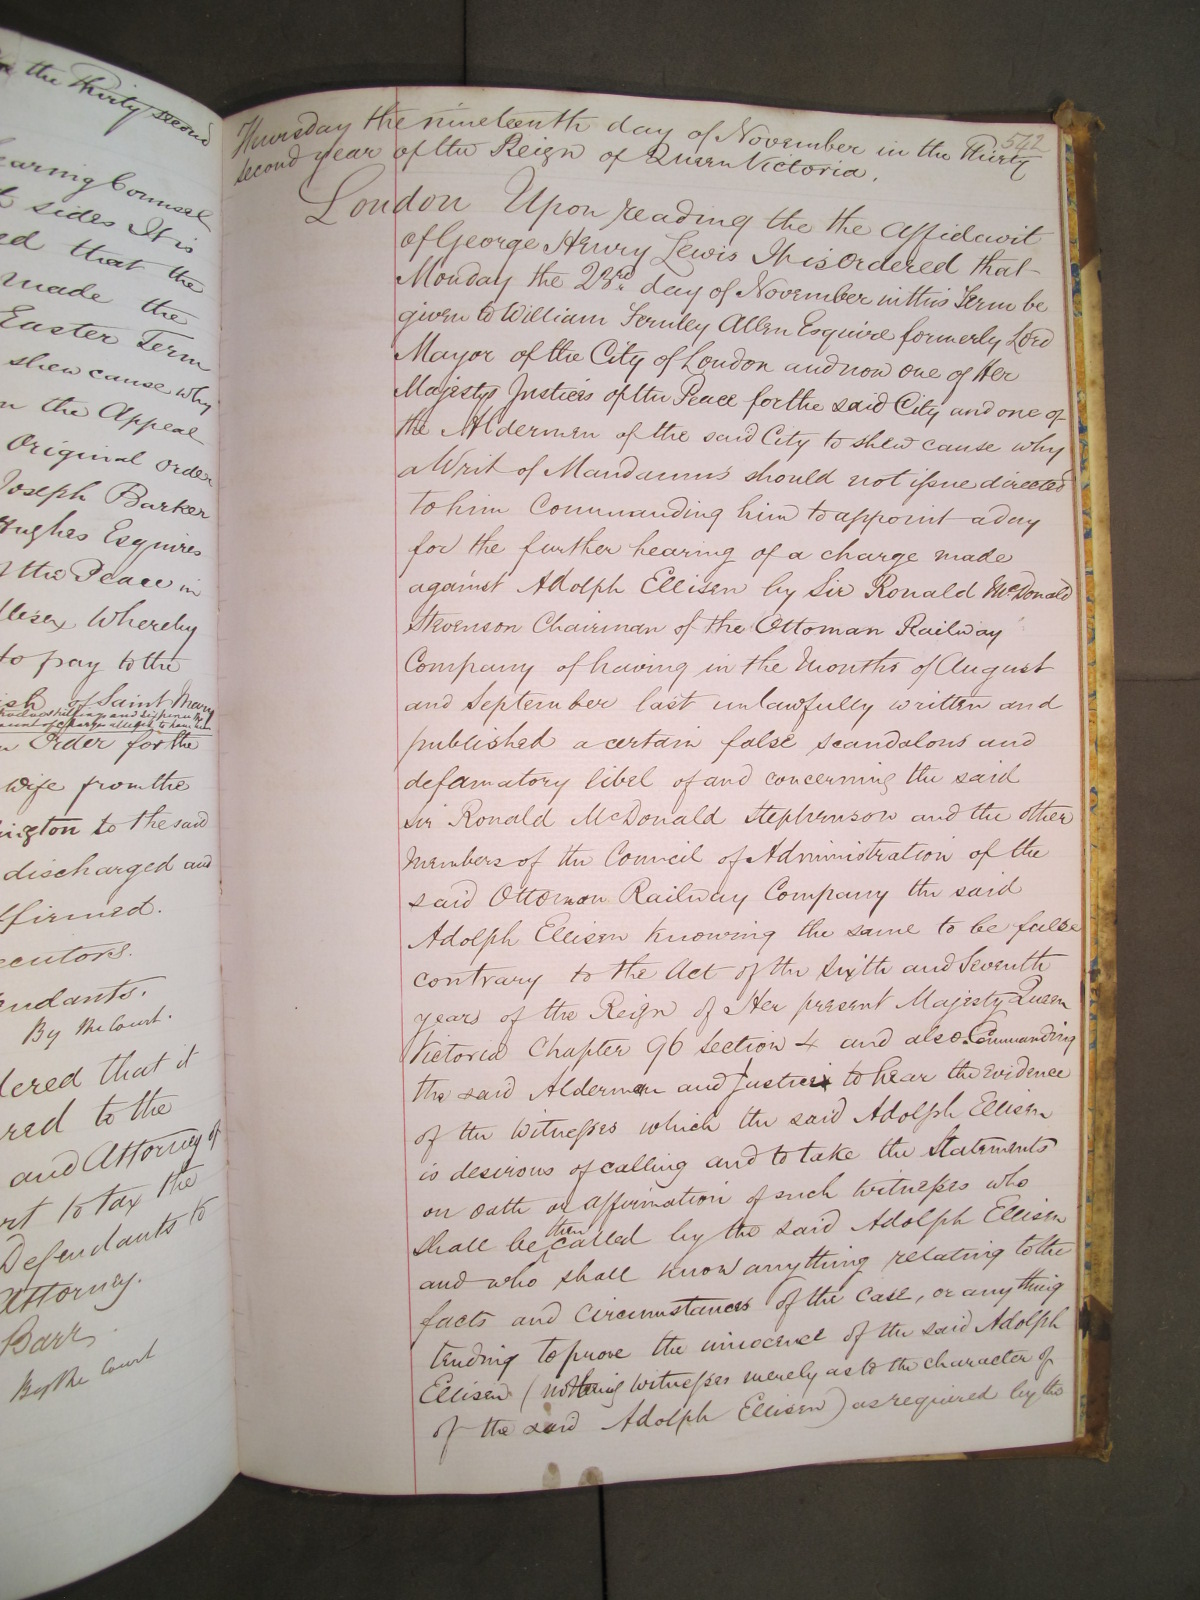 in the Thirty second
hearing Counsel
sides It is
that the
made the
Easter Term
shew cause why
the Appeal
Original order
Joseph Barker
Hughes Esquires
of the Peace in
Whereby
to pay to the
of Saint Mary
Order for the
wife from the
to the said
discharged and
affirmed.
By the Court.
that it
to the
and Attorney of
to tax the
Defendants to
Attorney.
Barr
By the Court
542
Thursday the nineteenth day of November in the Thirty
second year of the Reign of Queen Victoria.
London Upon reading the the Affidavit
of George Henry Lewis It is Ordered that
Monday the 23rd. day of November in this Term be
given to William Fernley Allen Esquire formerly Lord
Mayor of the City of London and now one of Her
Majestys Justices of the Peace for the said City and one of
the Aldermen of the said City to shew cause why
a Writ of Mandamus should not issue directed
to him Commanding him to appoint a day
for the further hearing of a charge made
against Adolph Ellisen by Sir Ronald McDonald
Stevenson Chairman of the Ottoman Railway
Company of having in the Months of August
and September last unlawfully written and
published a certain false scandalous and
defamatory libel of and concerning the said
Sir Ronald McDonald Stephenson and the other
Members of the Council of Administration of the
said Ottoman Railway Company the said
Adolph Ellisen knowing the same to be false
contrary to the Act of the Sixth and Seventh
years of the Reign of Her present Majesty Queen
Victoria Chapter 96 Section 4 and also Commanding
the said Alderman and Justice to hear the evidence
of the Witnesses which the said Adolph Ellisen
is desirous of calling and to take the Statements
on oath or affirmation of such Witnesses who
shall be then called by the said Adolph Ellisen
and who shall know anything relating to the
facts and Circumstances of the Case, or anything
tending to prove the innocence of the said Adolph
Ellisen (not being Witnesses merely as to the character of
of the said Adolph Ellisen) as required by the